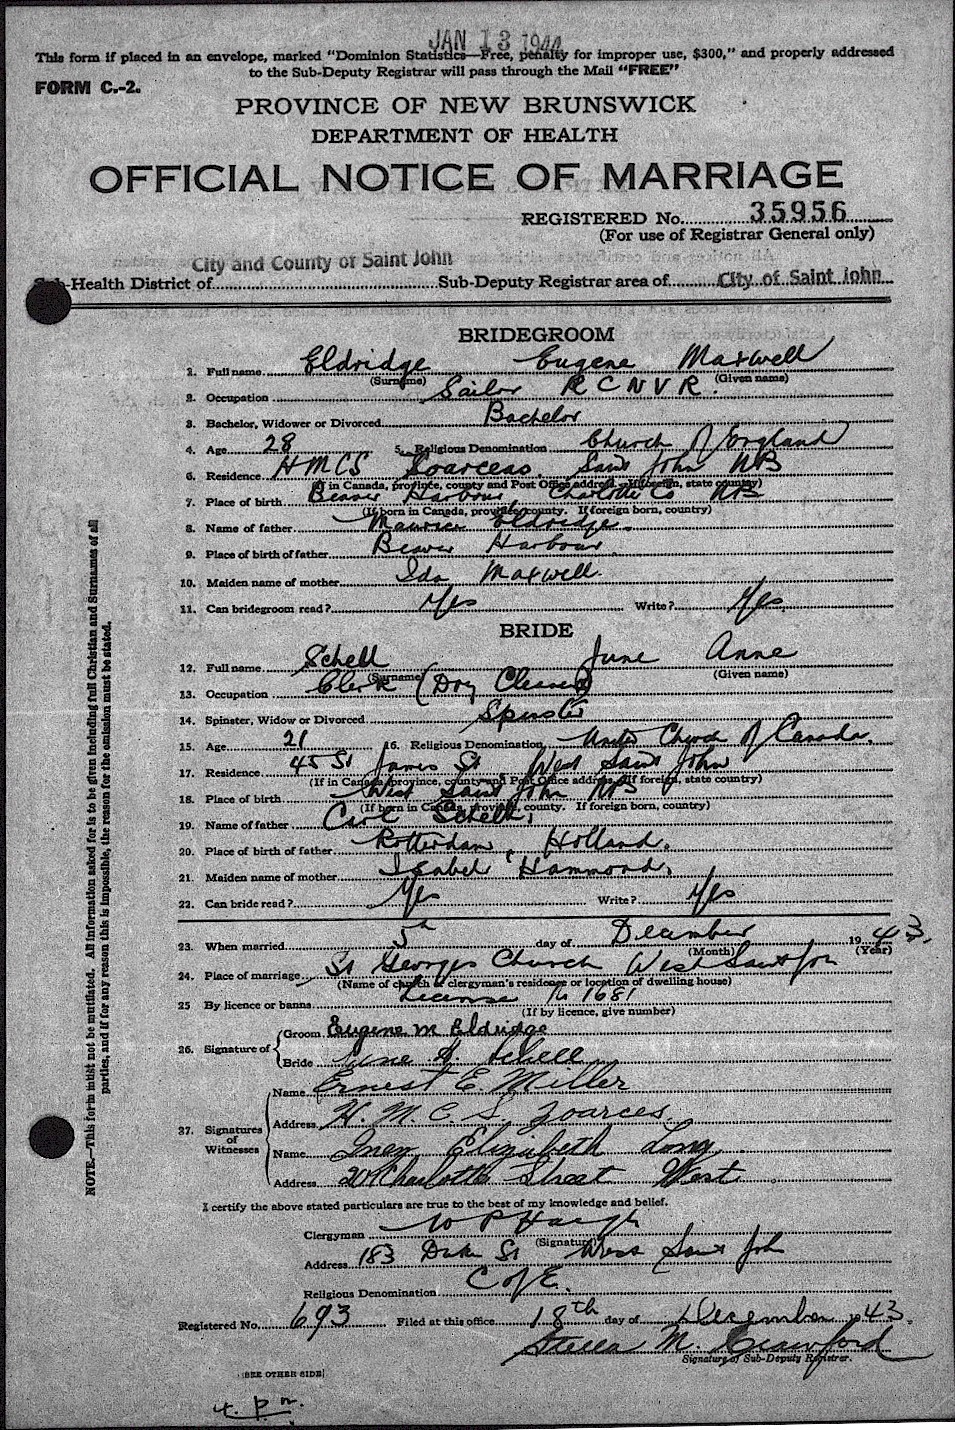 JAN 13 1944
This form if placed in an envelope, marked "Dominion Statistics—Free, penalty for improper use, $300," and properly addressed
to the Sub-Deputy Registrar will pass through the Mail "FREE"
FORM C.-2.
PROVINCE OF NEW BRUNSWICK
DEPARTMENT OF HEALTH
OFFICIAL NOTICE OF MARRIAGE
REGISTERED No. 35956
(For use of Registrar General only)
City and County of Saint John
Sub-Health District of Sub-Deputy Registrar area of City of Saint John
BRIDEGROOM
1. Full name Eldridge Eugene Maxwell
(Surname) (Given name)
2. Occupation Sailor R C N V R.
3. Bachelor, Widower or Divorced Bachelor
4. Age 28 5. Religious Denomination Church of England
6. Residence HMCS Saint John NB
(If in Canada, province, county and Post Office address. If foreign, state country)
7. Place of birth Beaver Harbour, Charlotte Co NB
(If born in Canada, province, county. If foreign born, country)
8. Name of father Maurice Eldridge
9. Place of birth of father Beaver Harbour
10. Maiden name of mother Ida Maxwell
11. Can bridegroom read? Yes Write? Yes
BRIDE
12. Full name Schell June Anne
(Surname) (Given name)
13. Occupation Clerk (Dry Cleaner)
14. Spinster, Widow or Divorced Spinster
15. Age 21 16. Religious Denomination United Church of Canada.
17. Residence 45 St James St West Saint John
(If in Canada, province, county and Post Office address. If foreign, state country)
18. Place of birth West Saint John NB
(If born in Canada, province, county. If foreign born, country)
19. Name of father Carl Schell
20. Place of birth of father Rotterdam, Holland.
21. Maiden name of mother Isabel Hammond.
22. Can bride read? Yes Write? Yes
23. When married 5th day of December 1943.
(Month) (Year)
24. Place of marriage St Georges Church West Saint John
(Name of church or clergyman's residence or location of dwelling house)
25 By licence or banns License No 1681
(If by licence, give number)
26. Signature of Groom Eugene M Eldridge
Bride June A. Schell
37. Signatures of Witnesses
Name Ernest E. Miller
Address H. M. C. S. Zoarces.
Name Inez Elizabeth Long
Address Charlotte Street West
I certify the above stated particulars are true to the best of my knowledge and belief.
Clergyman W P Haugh
(Signature)
Address 183 Duke St West Saint John
Religious Denomination C of E.
Registered No. 693 Filed at this office 18th day of December 1943.
Stella M. Crawford
Signature of Sub-Deputy Registrar.
(SEE OTHER SIDE)
4. p.m.
NOTE.—This form must not be mutilated. All information asked for is to be given including full Christian and Surnames of all
parties, and if for any reason this is impossible, the reason for the omission must be stated.